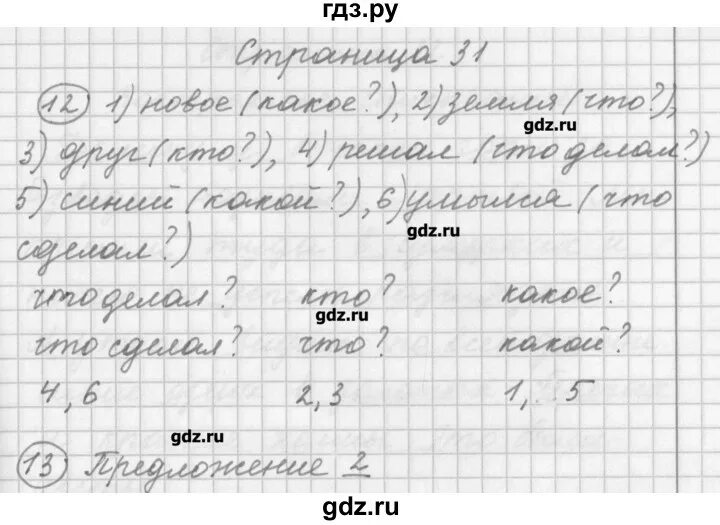 гдз.ру
Страница 31
12) 1) новое (какое?), 2) земля (что?),
gdz.ru
3) друг (кто?), 4) решал (что делал?)
5) синий (какой?), 6) умылся (что
gdz.ru
сделал?)
что делал? кто? какое?
gdz.ru
что сделал? что? какой?
4, 6 2, 3 1, 5
gdz.ru
13) Предложение 2
gdz.ru